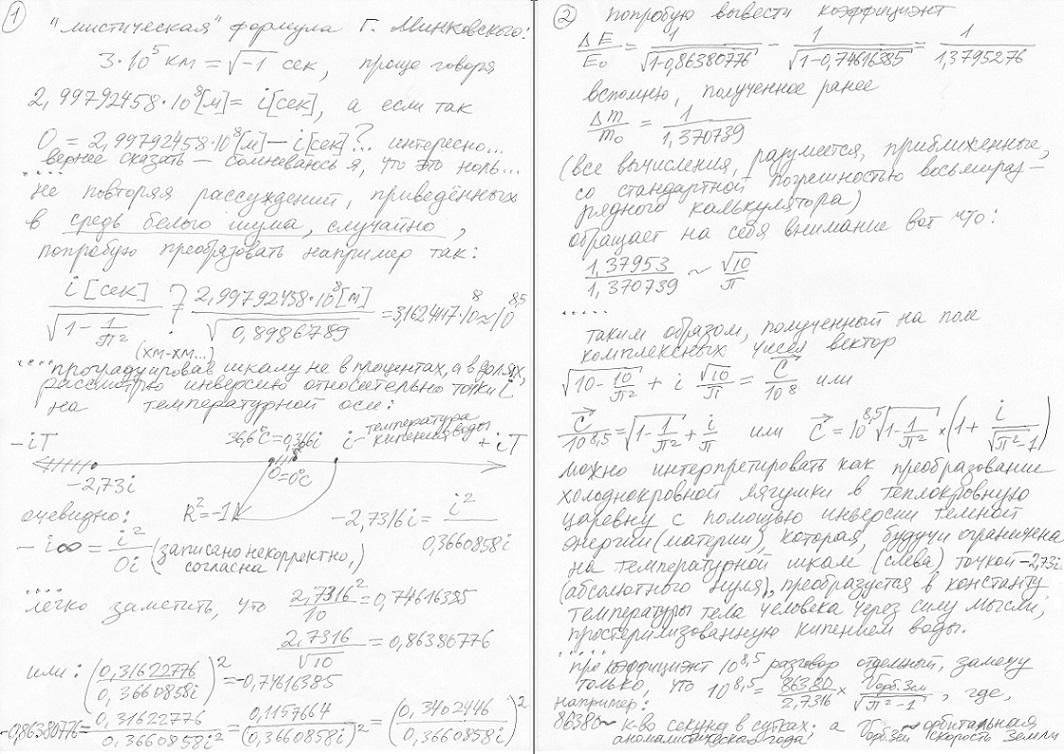 1
"мистическая" формула Г. Минковского:
3·10⁵ км = √-1 сек, проще говоря
2,99792458·10⁸[м] = i[сек], а если так
0 = 2,99792458·10⁸[м] − i[сек]?.. интересно...
вернее сказать – сомневаюсь я, что это ноль...
....
не повторяя рассуждений, приведённых
в средь белого шума, случайно,
попробую преобразовать например так:
i[сек] / √(1 − 1/π²) ? 2,99792458·10⁸[м] / √0,8986789 = 3,1624417·10⁸ ≈ 10^8,5
(хм-хм...)
.... проградуировав шкалу не в процентах, а в долях,
рассмотрю инверсию относительно точки i
на температурной оси:
36,6°C = 0,366i i – температура кипения воды
−iT +iT
−2,73i 0=0°C
очевидно: R² = −1 −2,7316i = i² / 0,3660858i
−i∞ = i² / 0i (записано некорректно, согласна)
....
легко заметить, что 2,7316² / 10 = 0,74616385
2,7316 / √10 = 0,86380776
или: (0,31622776 / 0,3660858i)² = −0,74616385
−0,86380776 = 0,31622776 / 0,3660858i² = 0,1157664 / (0,3660858i)² = (0,3402446 / 0,3660858i)²
2
попробую вывести коэффициент
ΔE / E₀ = 1 / √(1−0,86380776) − 1 / √(1−0,74616385) = 1 / 1,3795276
вспомню, полученное ранее
Δm / m₀ = 1 / 1,370739
(все вычисления, разумеется, приближенные,
со стандартной погрешностью восьмираз-
рядного калькулятора)
обращает на себя внимание вот что:
1,37953 / 1,370739 ~ √10 / π
.....
таким образом, полученный на поле
комплексных чисел вектор
√(10 − 10/π²) + i √10/π = C⃗ / 10⁸ или
C⃗ / 10^8,5 = √(1 − 1/π²) + i/π или C⃗ = 10^8,5 √(1 − 1/π²) × (1 + i / √(π²−1))
можно интерпретировать как преобразование
холоднокровной лягушки в теплокровную
царевну с помощью инверсии темной
энергии (материи), которая, будучи ограничена
на температурной шкале (слева) точкой −2,73i
(абсолютного нуля), преобразуется в константу
температуры тела человека через силу мысли,
простерилизованную кипением воды.
.....
про коэффициент 10^8,5 разговор отдельный, замечу
только, что 10^8,5 = 86380 / 2,7316 × Vорб.Зем / √(π²−1), где,
например:
86380 ~ к-во секунд в сутках; а Vорб.Зем ~ орбитальная
аномалистического года скорость Земли